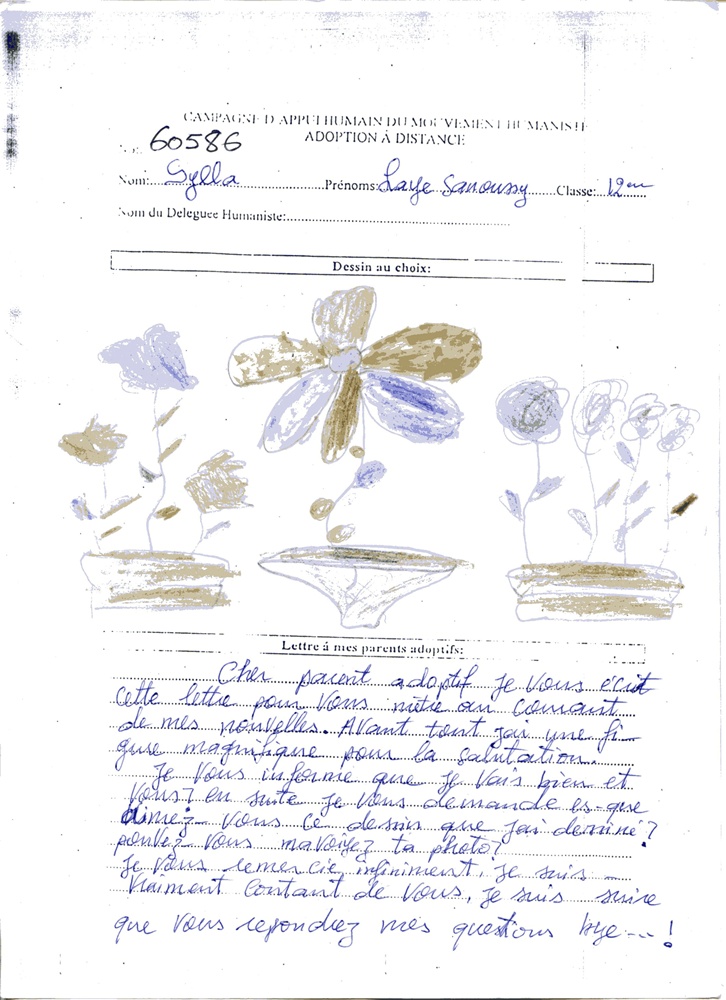 CAMPAGNE D'APPUI HUMAIN DU MOUVEMENT HUMANISTE
ADOPTION Á DISTANCE
60586
Nom: Sylla Prénoms: Laye Sanoussy Classe: 12em
Nom du Deleguee Humaniste:
Dessin au choix:
Lettre á mes parents adoptifs:
Cher parent adoptif je vous ecrit
cette lettre pour vous mètre au courant
de mes nouvelles. Avant tout jai une fi-
gure magnifique pour la salutation.
Je vous informe que je vais bien et
vous? en suite je vous demande es-que
aimez-vous ce dessin que jai dessiné?
pouvez vous mavoyez ta photo?
Je vous remercie infiniment, je suis
vraiment contant de vous, je suis suire
que vous repondrez mes questions bye---!